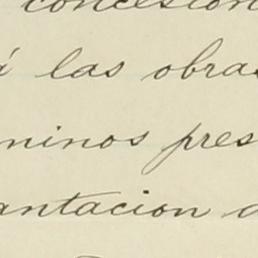 concesion
á las obras
minos pres
antacion d